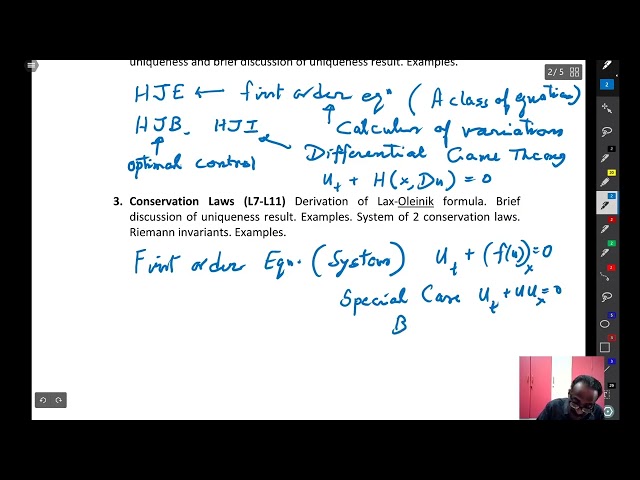 uniqueness and brief discussion of uniqueness result. Examples.
2 / 5
HJE ← first order eqⁿ (A class of equations)
HJB, HJI Calculus of variations
optimal control Differential Game Theory
u_t + H(x, Du) = 0
3. Conservation Laws (L7-L11) Derivation of Lax-Oleinik formula. Brief
discussion of uniqueness result. Examples. System of 2 conservation laws.
Riemann invariants. Examples.
First order Eqn. (System) u_t + (f(u))_x = 0
Special Case u_t + uu_x = 0
B